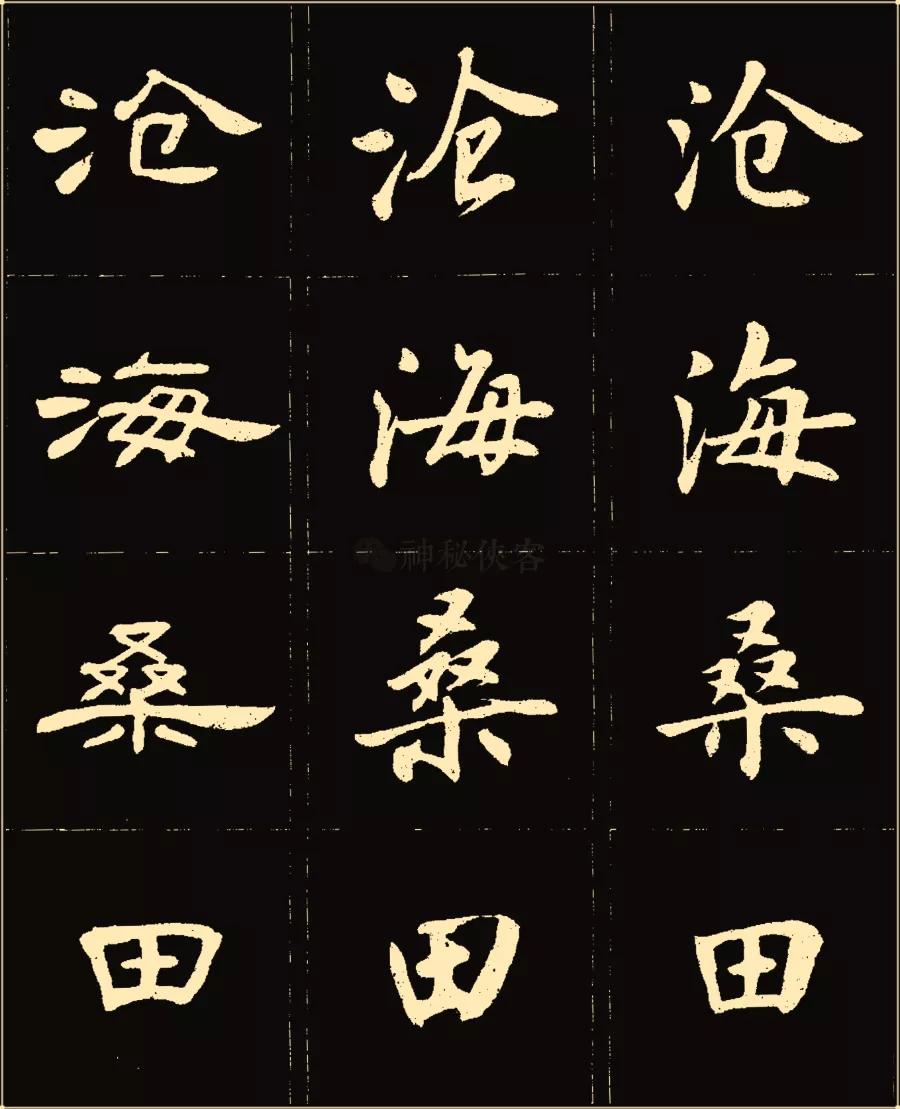 沧 沧 沧
海 海 海
神秘侠客
桑 桑 桑
田 田 田